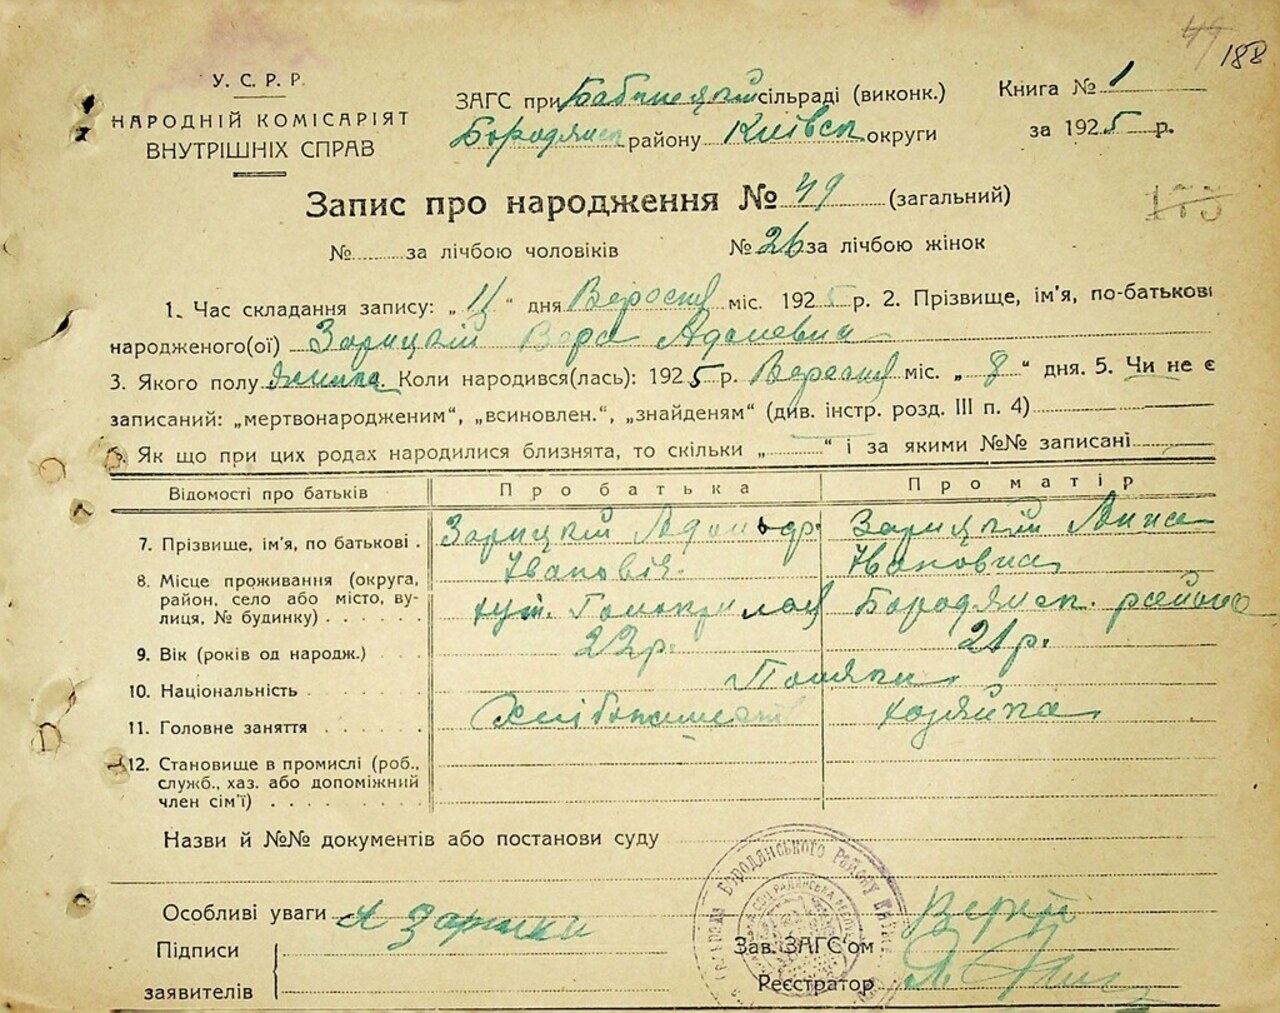 49
188
У. С. Р. Р.
НАРОДНІЙ КОМІСАРІЯТ
ВНУТРІШНІХ СПРАВ
ЗАГС при Бабинецькій сільраді (виконк.)
Бородянск району Київск округи
Книга № 1
за 1925 р.
Запис про народження № 49 (загальний)
173
№ за лічбою чоловіків № 26 за лічбою жінок
1. Час складання запису: „11“ дня Вересня міс. 1925 р. 2. Прізвище, ім'я, по-батькові
народженого(ої) Зарицкій Вера Адолевна
3. Якого полу жинка. Коли народився(лась): 1925 р. Вересня міс. „8“ дня. 5. Чи не є
записаний: „мертвонародженим“, „всиновлен.“, „знайденям“ (див. інстр. розд. III п. 4)
Як що при цих родах народилися близнята, то скільки „ “ і за якими №№ записані
Відомості про батьків Про батька Про матір
7. Прізвище, ім'я, по батькові . Зарицкій Адольф. Зарицькій Анна
Івановіч. Івановна
8. Місце проживання (округа,
район, село або місто, ву-
лиця, № будинку) . . . . . . хут. Бородянск. району
9. Вік (років од народж.) . . . 22 р. 21 р.
10. Національність . . . . . . . Поляки
11. Головне заняття . . . . . . Хлібопашество хозяйка
12. Становище в промислі (роб.,
служб., хаз. або допоміжний
член сім'ї) . . . . . . . .
Назви й №№ документів або постанови суду
Особливі уваги А Зарицки
Підписи
заявителів
Зав. ЗАГС'ом
Реєстратор
БОРОДЯНСЬКОГО РАЙОНУ